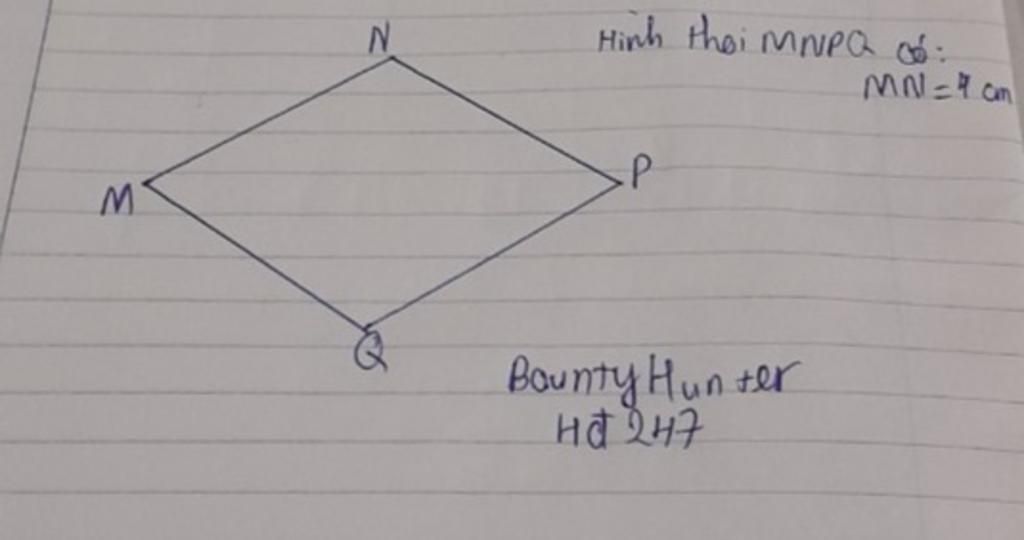 N
Hình thoi MNPQ có:
MN = 4 cm
M
P
Q
Bounty Hunter
Hđ 247